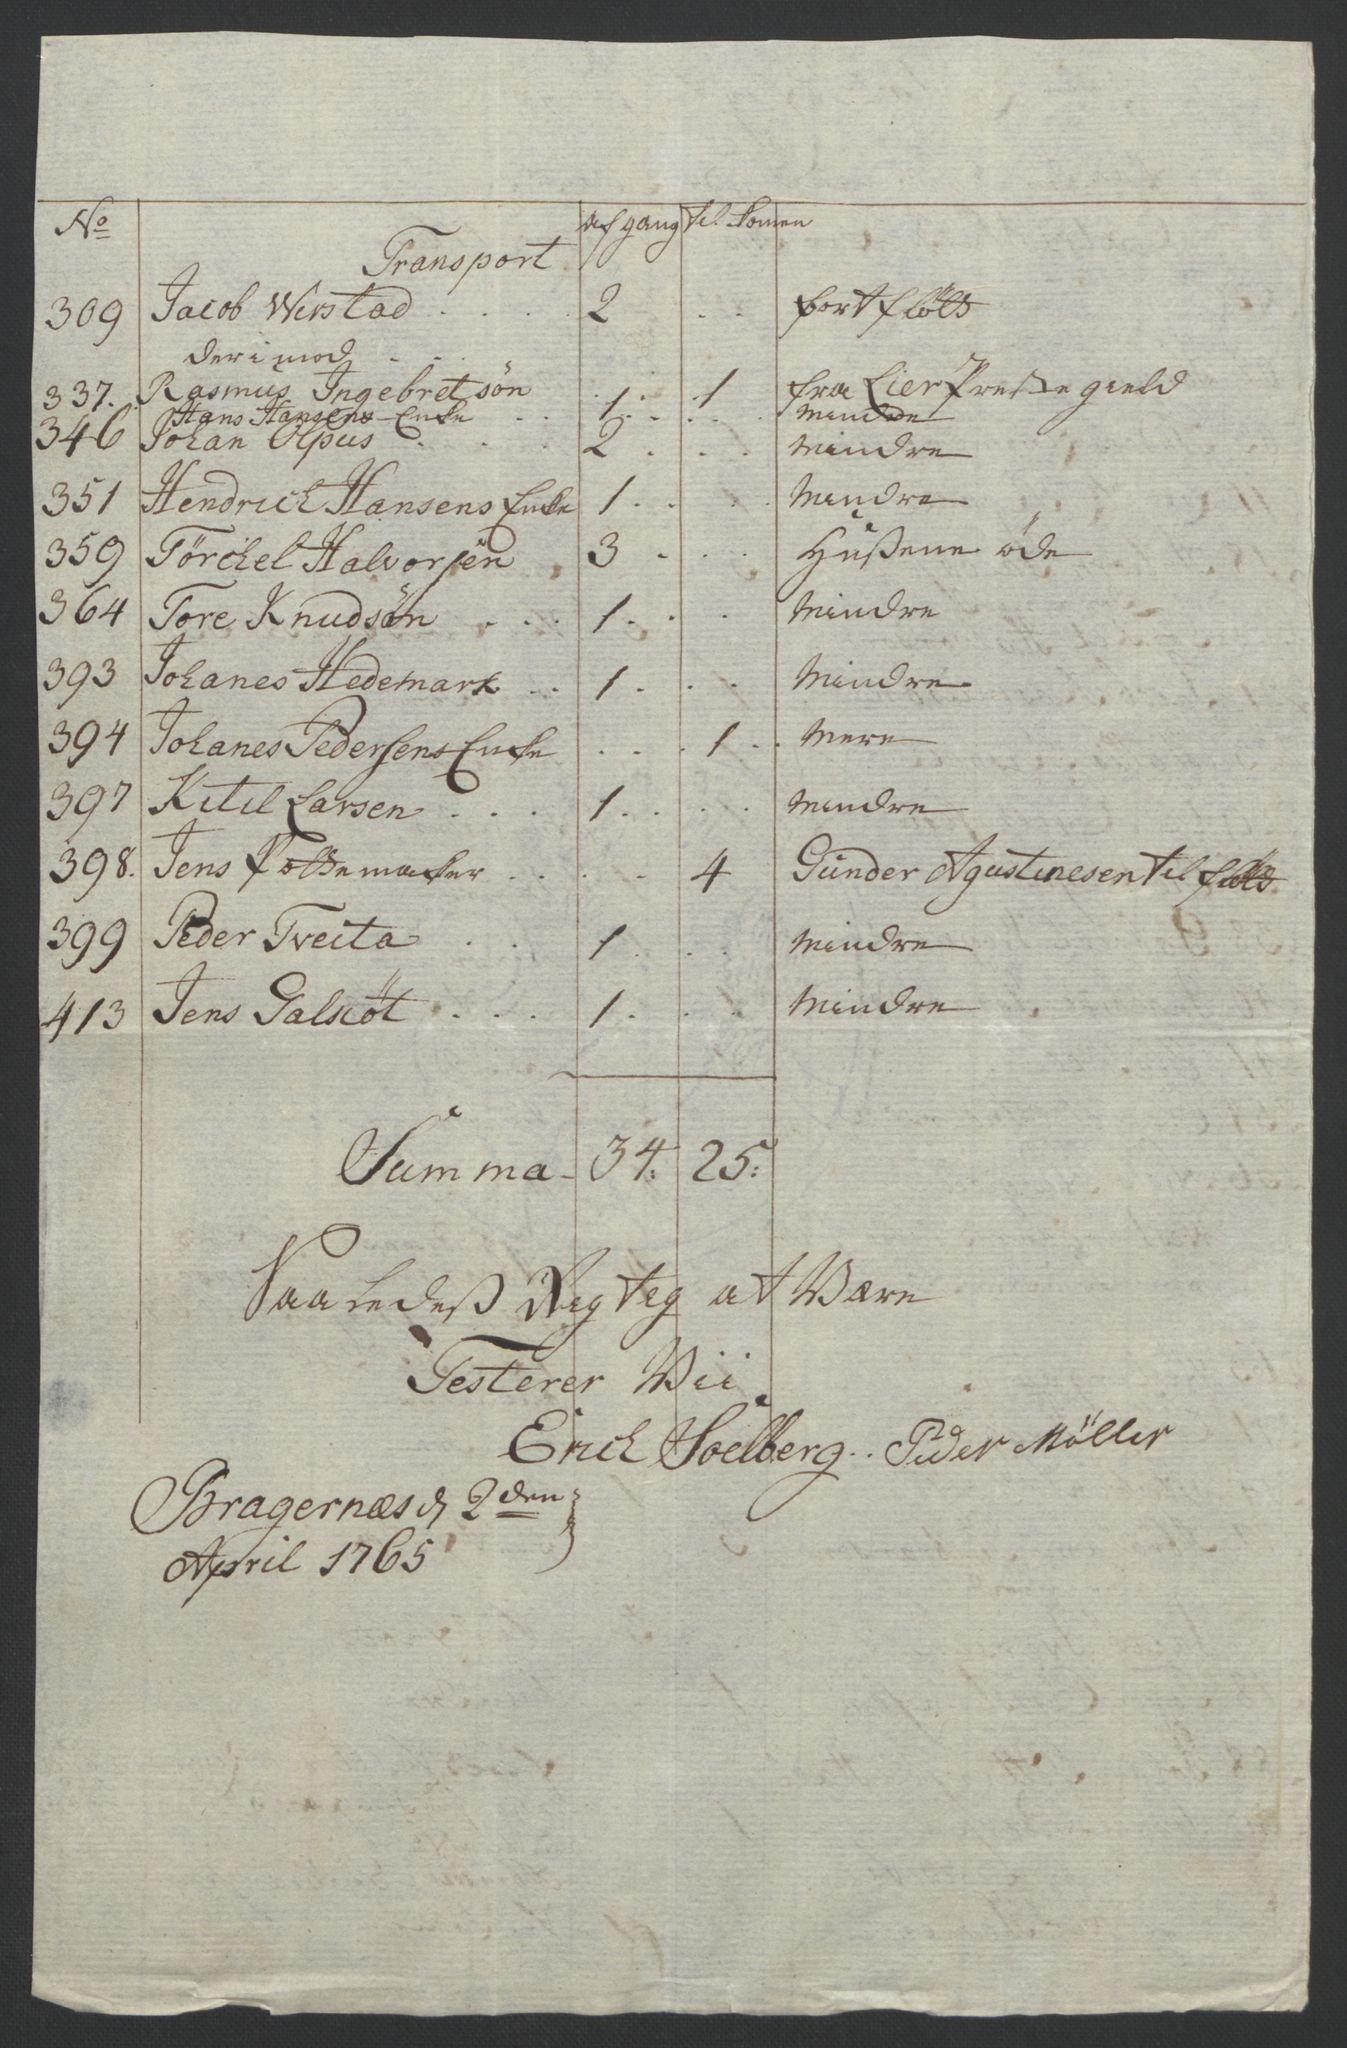 No afgang tilkomen
Transport
309 Jacob Wirstad . . . . 2 . . bortfløtt
derimod . . .
337. Rasmus Ingebretsøn . 1 fra Lier Præstegield
Hans Hansens Encke . . 1 . . . mindre
346 Johan Olpus . . . . 2 . . . mindre
351 Hendrich Hansens Encke 1 . . . mindre
359 Törchel Halvorsen 3 . . . Hußene øde
364 Tore Knudsøn . . . 1 . . . mindre
393 Johanes Hedemark . . 1 . . . mindre
394 Johanes Pedersens Encke . . . 1 . . mere
397 Kitil Larsen . . . 1 . . . . mindre
398. Jens Pottemacker . . . . 4 Gunder Agustinesen til fløtt
399 Peder Tveita . . 1 . . . mindre
413 Jens Galskøt . . . 1 . . . mindre
Summa - 34: 25:
Saaledeß Rigtig at Være
Testerer Vii
Erich Soelberg . . Peder Möller
Bragernæs d 2den
April 1765